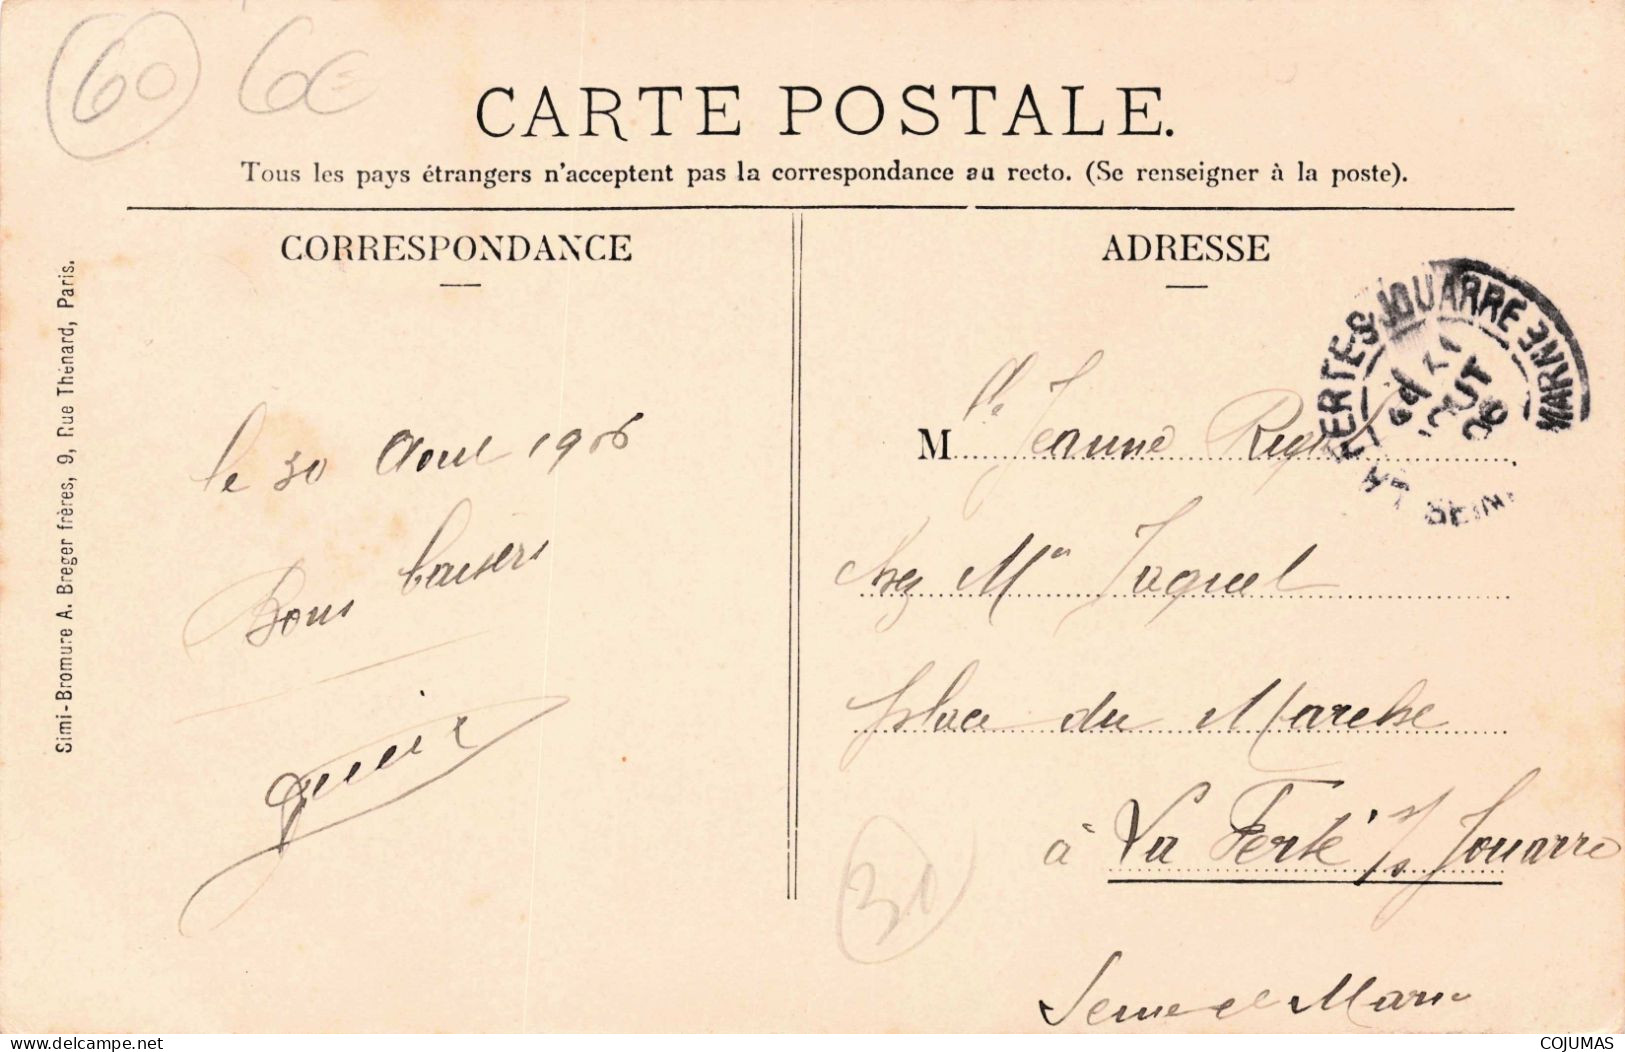 60 6€
CARTE POSTALE.
Tous les pays étrangers n'acceptent pas la correspondance au recto. (Se renseigner à la poste).
CORRESPONDANCE
Simi-Bromure A. Breger frères, 9, Rue Thénard, Paris.
le 30 Aout 1906
Bons baisers
ADRESSE
LA FERTE S JOUARRE
SEINE ET MARNE
M lle Jeanne
chez Mr Jaquel
place du Marche
à La Ferté s/s Jouarre
Seine et Marne
30
www.delcampe.net
COJUMAS